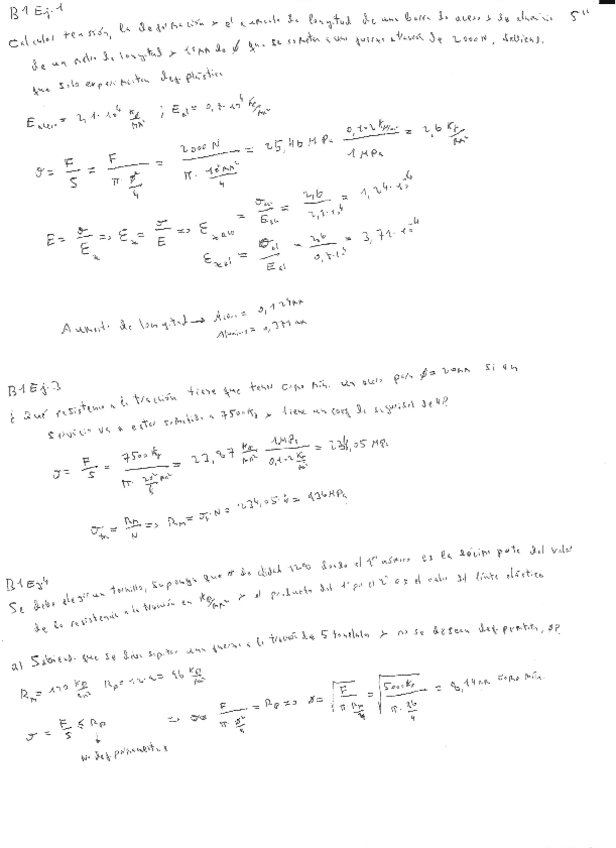 B1 Ej. 1
Calcular tensión, la deformación y el aumento de longitud de una barra de acero y de aluminio 5"
de un metro de longitud y 10 mm de φ que se somete a una fuerza de 2000 N,
que solo experimentan def. plástica
E acero = 2,1·10⁴ Kp/mm² ; E al = 0,7·10⁴ Kp/mm²
σ = F/S = F/(π·φ²/4) = 2000 N/(π·10² mm²/4) = 25,46 MPa · 0,102 Kp/mm²/1 MPa = 2,6 Kp/mm²
E = σ/ε => ε = σ/E => ε acero = σ/E = 2,6/2,1·10⁴ = 1,24·10⁻⁴
ε al = σ al/E al = 2,6/0,7·10⁴ = 3,71·10⁻⁴
Aumento de longitud → Acero = 0,124 mm
Aluminio = 0,371 mm
B1 Ej. 3
¿Qué resistencia a la tracción tiene que tener como mín. un acero para φ = 20 mm si en
servicio va a estar sometido a 7500 Kp y tiene un coef. de seguridad de 4?
σ = F/S = 7500 Kp/(π·20²/4 mm²) = 23,87 Kp/mm² · 1 MPa/0,102 Kp/mm² = 234,05 MPa
= Rm/N => Rm = σ·N = 234,05·4 = 936 MPa
B1 Ej 4
Se debe elegir un tornillo, suponga que de calidad 12 donde el 1er número es la décima parte del valor
de la resistencia a la tracción en Kp/mm² y el producto del 1º por el 2º es el valor del límite elástico
a) Sabiendo que se debe soportar una fuerza a la tracción de 5 toneladas y no se desean def. permanentes,
Rm = 120 Kp/mm² = 96 Kp/mm²
σ = F/S ≤ Rp => F/(π·φ²/4) = Rp => φ = √(F/(π·Rp/4)) = √(5000 Kp/(π·96/4)) = 8,14 mm como mín.
No def permanentes